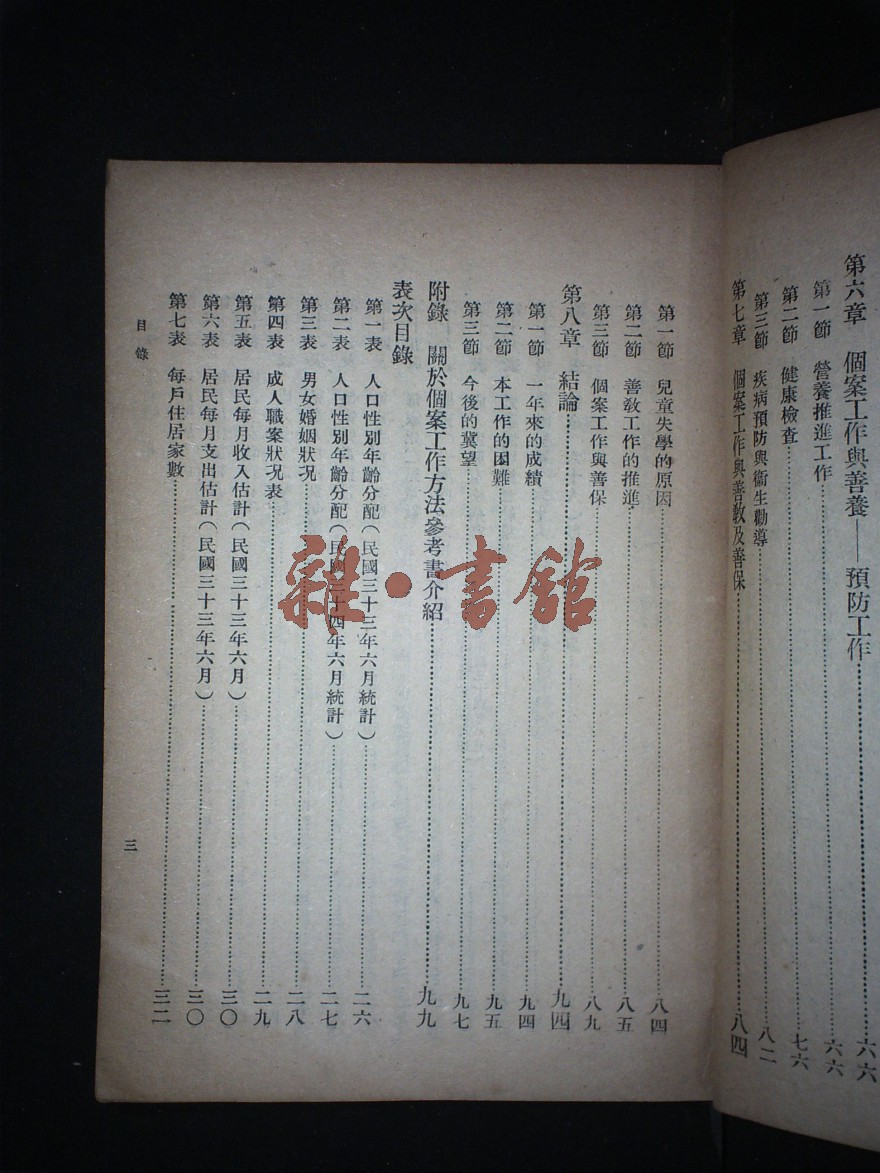 第六章　個案工作與善養——預防工作……六六
第一節　營養推進工作……六六
第二節　健康檢查……七六
第三節　疾病預防與衞生勸導……八二
第七章　個案工作與善教及善保……八四
第一節　兒童失學的原因……八四
第二節　善教工作的推進……八五
第三節　個案工作與善保……八九
第八章　結論……九四
第一節　一年來的成績……九四
第二節　本工作的困難……九五
第三節　今後的冀望……九七
附錄　關於個案工作方法參考書介紹……九九
表次目錄
第一表　人口性別年齡分配（民國三十三年六月統計）……二六
第二表　人口性別年齡分配（民國三十四年六月統計）……二七
第三表　男女婚姻狀況……二八
第四表　成人職案狀況表……二九
第五表　居民每月收入估計（民國三十三年六月）……三〇
第六表　居民每月支出估計（民國三十三年六月）……三〇
第七表　每戶住居家數……三二
目錄
三
雜·書舘